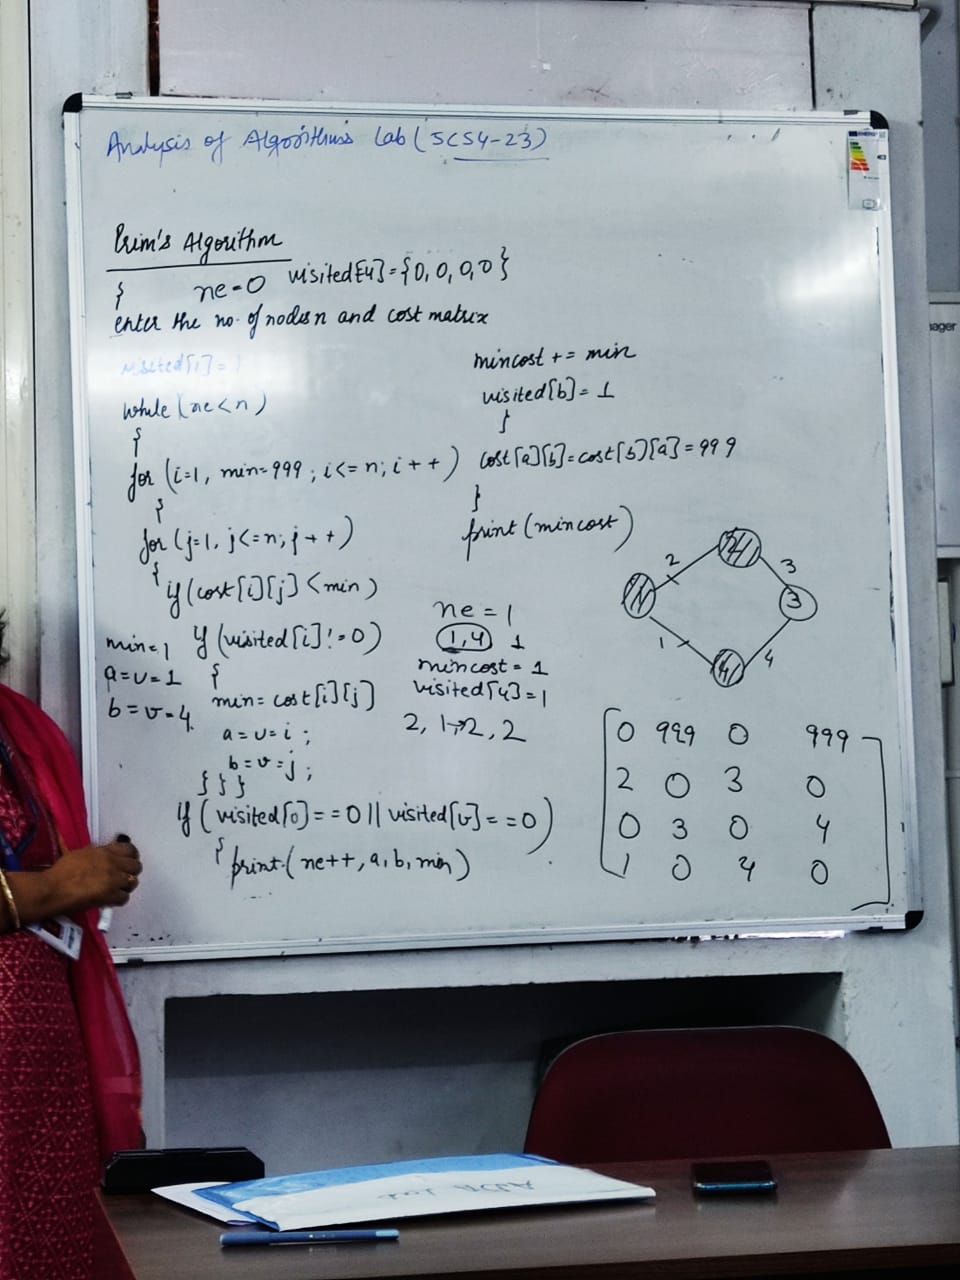 Analysis of Algorithms Lab (5CS4-23)
Prim's Algorithm
{ ne=0 visited[4]={0,0,0,0}
enter the no. of nodes n and cost matrix
visited[1]=1
while (ne<n)
{
for (i=1, min=999; i<=n; i++)
{
for (j=1, j<=n; j++)
{ if (cost[i][j]<min)
if (visited[i]!=0)
{
min=cost[i][j]
a=u=i;
b=v=j;
}}}
if (visited[0]==0||visited[v]==0)
{ print(ne++,a,b,min)
mincost += min
visited[b]=1
}
cost[a][b]=cost[b][a]=999
}
print(mincost)
min=1
a=u=1
b=v=4
ne=1
1,4 1
mincost=1
visited[4]=1
2, 1→2, 2
2
3
3
1
4
4
0 999 0 999
2 0 3 0
0 3 0 4
1 0 4 0
ager